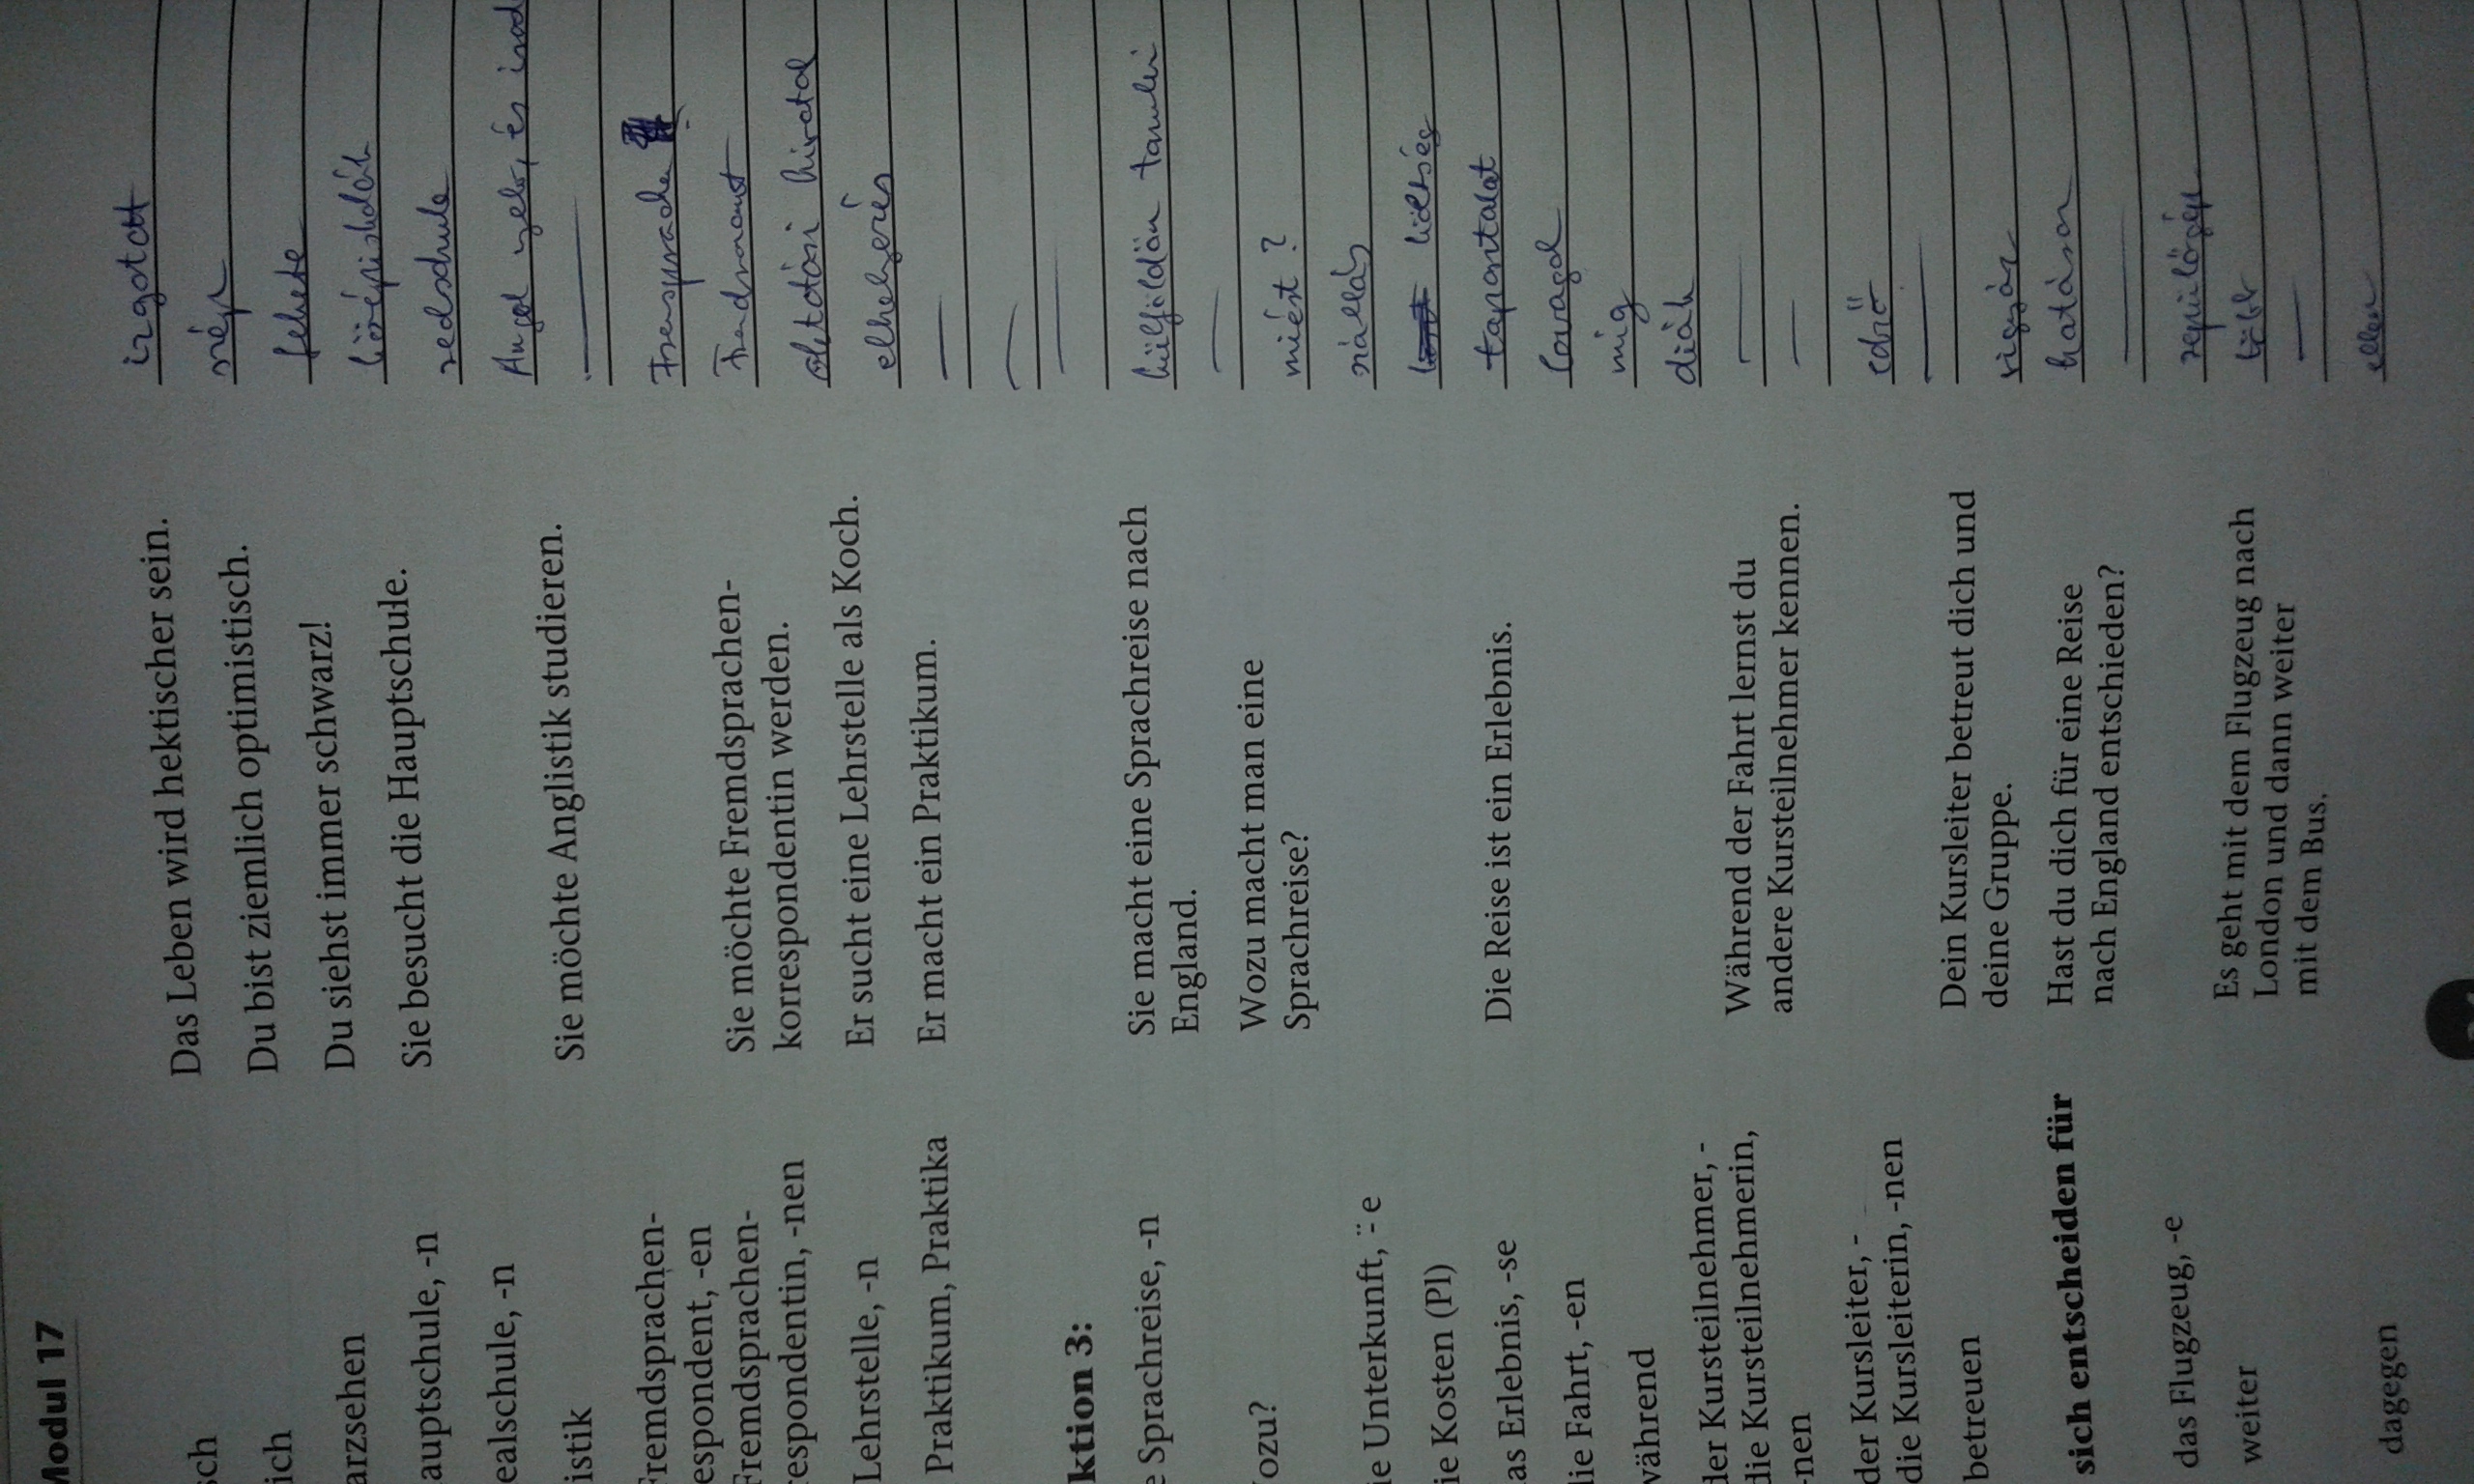 Modul 17
sch
Das Leben wird hektischer sein.
izgatott
ich
Du bist ziemlich optimistisch.
szép
arzsehen
Du siehst immer schwarz!
fekete
auptschule, -n
Sie besucht die Hauptschule.
középiskolák
ealschule, -n
realschule
istik
Sie möchte Anglistik studieren.
Angol nyelv, és irod
Fremdsprachen-
espondent, -en
Fremdsprachen-
respondentin, -nen
Sie möchte Fremdsprachen-
korrespondentin werden.
Lehrstelle, -n
Er sucht eine Lehrstelle als Koch.
oktatási hivatal
Praktikum, Praktika
Er macht ein Praktikum.
elhelyezés
ktion 3:
e Sprachreise, -n
Sie macht eine Sprachreise nach
England.
külföldön tanulni
ozu?
Wozu macht man eine
Sprachreise?
miért?
ie Unterkunft, ¨-e
szállás
ie Kosten (Pl)
költség
as Erlebnis, -se
Die Reise ist ein Erlebnis.
tapasztalat
die Fahrt, -en
lovagol
während
Während der Fahrt lernst du
andere Kursteilnehmer kennen.
míg
der Kursteilnehmer, -
die Kursteilnehmerin,
-nen
diák
der Kursleiter, -
die Kursleiterin, -nen
edző
betreuen
Dein Kursleiter betreut dich und
deine Gruppe.
sich entscheiden für
Hast du dich für eine Reise
nach England entschieden?
das Flugzeug, -e
Es geht mit dem Flugzeug nach
London und dann weiter
mit dem Bus.
repülőgép
weiter
több
dagegen
ellen